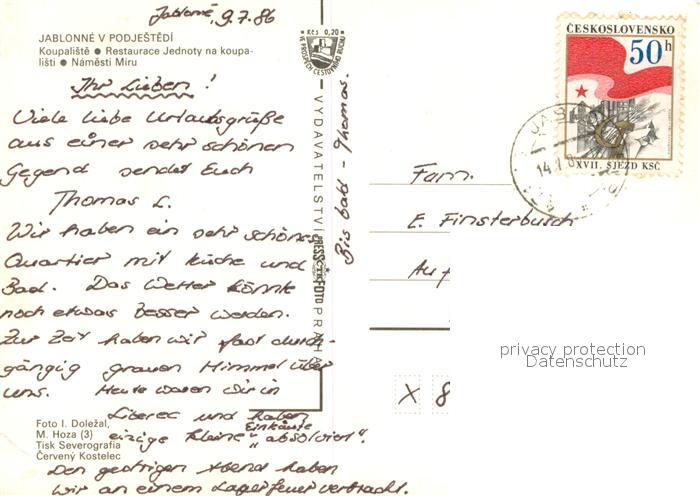 Jablonné, 9.7.86
JABLONNÉ V PODJEŠTĚDÍ
Koupaliště ● Restaurace Jednoty na koupa-
lišti ● Náměstí Míru
Ihr Lieben!
Viele liebe Urlaubsgrüße
aus einer sehr schönen
Gegend sendet Euch
Thomas L.
Wir haben ein sehr schönes
Quartier mit Küche und
Bad. Das Wetter könnte
noch etwas besser werden.
Zur Zeit haben wir fast durch-
gängig grauen Himmel über
uns. Heute waren wir in
Liberec und haben
einige kleine Einkäufe „absolviert“.
Den gestrigen Abend haben
wir an einem Lagerfeuer verbracht.
Bis bald - Thomas.
Foto I. Doležal,
M. Hoza (3)
Tisk Severografia
Červený Kostelec
Kčs 0,20
VE PROSPĚCH CESTOVNÍHO RUCHU
VYDAVATELSTVÍ PRESSFOTO PRAHA
ČESKOSLOVENSKO
50h
XVII. SJEZD KSČ
Fam.
E. Finsterbusch
Auf
X 8
privacy protection
Datenschutz